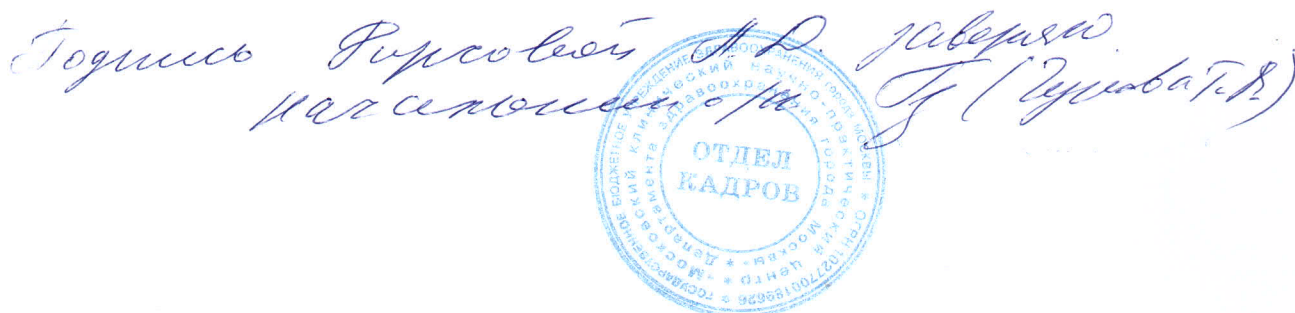 Подпись Фирсовой Л.Д. заверяю
начальник о/к (Чурикова Т.В.)
ГОСУДАРСТВЕННОЕ БЮДЖЕТНОЕ УЧРЕЖДЕНИЕ ЗДРАВООХРАНЕНИЯ ГОРОДА МОСКВЫ * ОГРН 1027700189626 *
«Московский клинический научно-практический центр»
Департамента здравоохранения города Москвы *
ОТДЕЛ
КАДРОВ